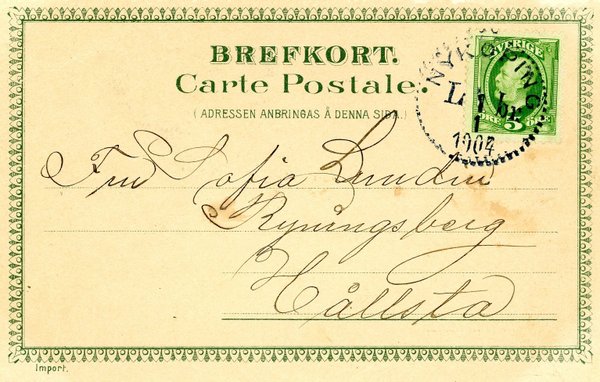 BREFKORT.
Carte Postale.
(ADRESSEN ANBRINGAS Å DENNA SIDA.)
SVERIGE
NYKÖPING
1904
5
Fru Sofia Lundin
Ryningsberg
Hållsta
Import.